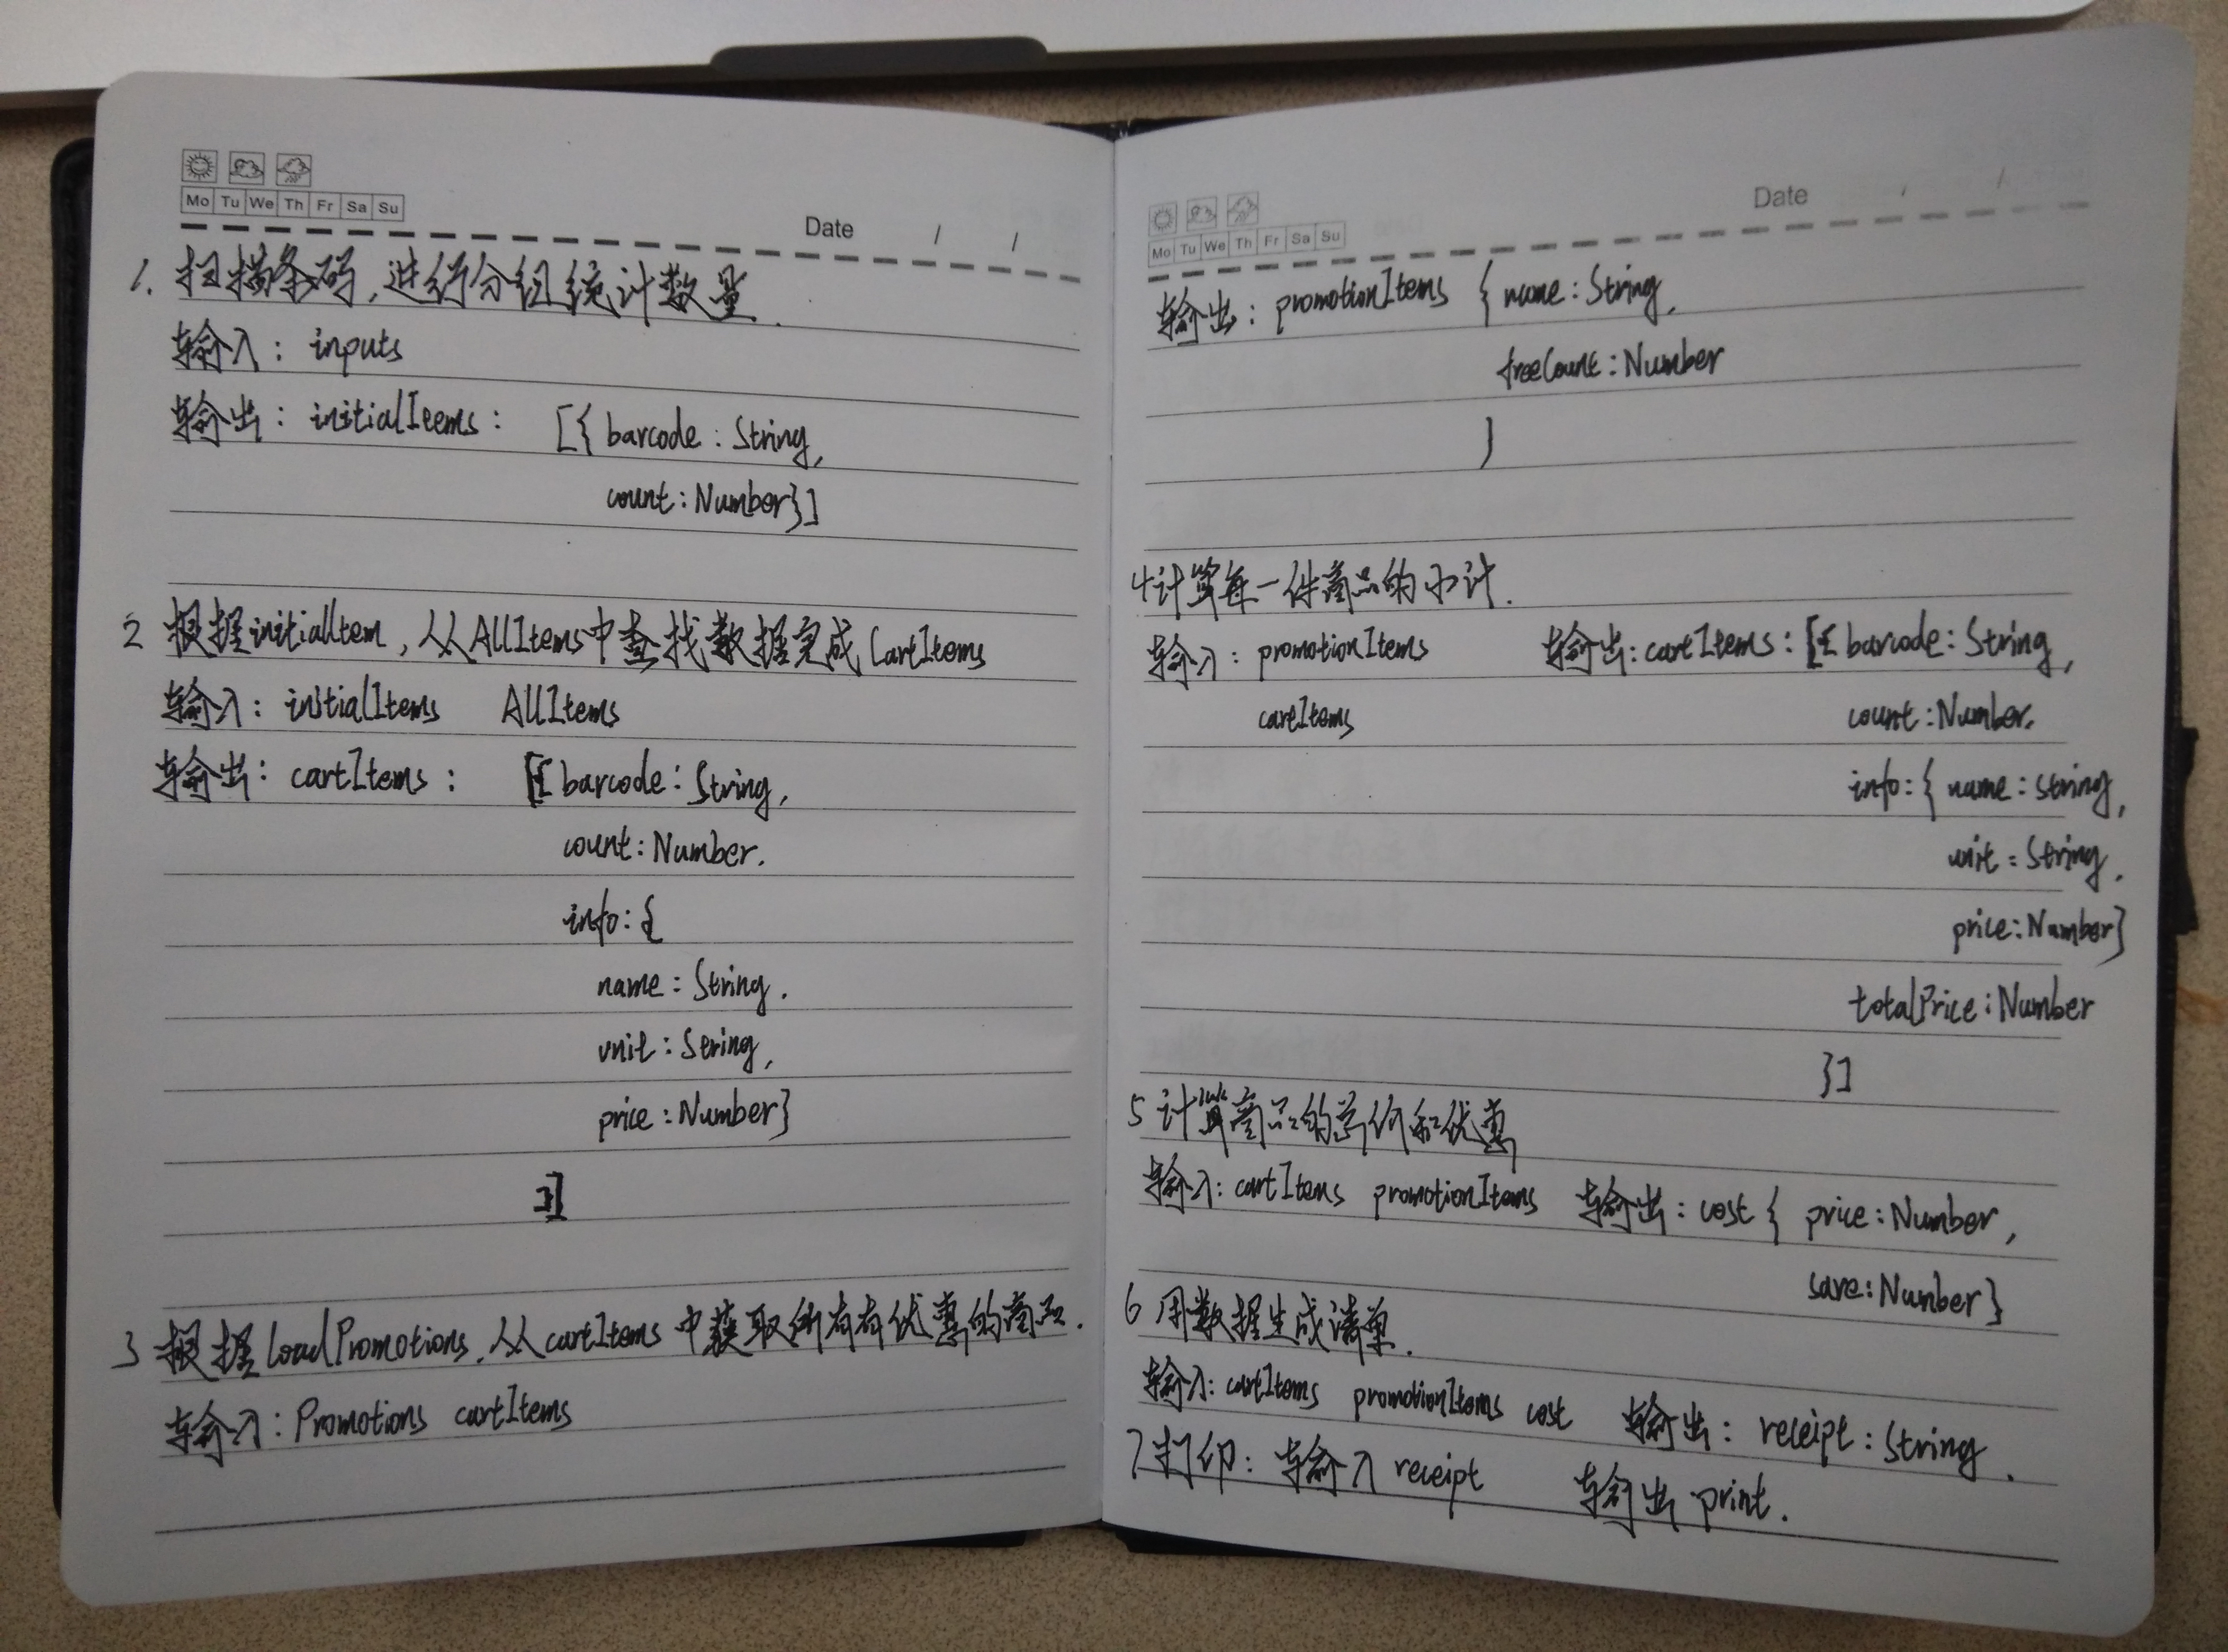 Mo Tu We Th Fr Sa Su
Date / /
1. 扫描条码,进行分组统计数量.
输入: inputs
输出: initialItems: [{ barcode: String,
count: Number}]
2 根据initialItem,从AllItems中查找数据完成CartItems
输入: initialItems AllItems
输出: cartItems: [{ barcode: String,
count: Number.
info: {
name: String.
unit: String,
price: Number}
}]
3 根据loadPromotions,从cartItems中获取所有有优惠的商品.
输入: Promotions cartItems
Mo Tu We Th Fr Sa Su
Date / /
输出: promotionItems { name: String,
freeCount: Number
}
4 计算每一件商品的小计.
输入: promotionItems 输出: cartItems: [{ barcode: String,
cartItems count: Number.
info: { name: String,
unit: String,
price: Number}
totalPrice: Number
}]
5 计算商品的总价和优惠
输入: cartItems promotionItems 输出: cost { price: Number,
save: Number}
6 用数据生成清单.
输入: cartItems promotionItems cost 输出: receipt: String.
7 打印: 输入 receipt 输出 print.